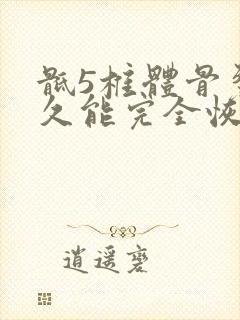 骶5椎體骨
久能完全恢
逍遥麥